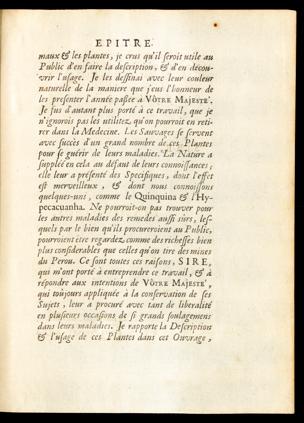 EPITRE.
maux & les plantes, je crus qu'il seroit utile au
Public d'en faire la description, & d'en décou-
vrir l'usage. Je les dessinai avec leur couleur
naturelle de la maniere que j'eus l'honneur de
les presenter l'année passée à VÔTRE MAJESTE'.
Je fus d'autant plus porté à ce travail, que je
n'ignorois pas les utilitez, qu'on pourroit en reti-
rer dans la Medecine. Les Sauvages se servent
avec succés d'un grand nombre de ces Plantes
pour se guérir de leurs maladies. La Nature a
suppléé en cela au défaut de leurs connoissances;
elle leur a présenté des Specifiques, dont l'effet
est merveilleux, & dont nous connoissons
quelques-uns, comme le Quinquina & l'Hy-
pecacuanha. Ne pourroit-on pas trouver pour
les autres maladies des remedes aussi sûrs, les-
quels par le bien qu'ils procureroient au Public,
pourroient être regardez comme des richesses bien
plus considerables que celles qu'on tire des mines
du Perou. Ce sont toutes ces raisons, SIRE,
qui m'ont porté à entreprendre ce travail, & à
répondre aux intentions de VÔTRE MAJESTE',
qui toûjours appliquée à la conservation de ses
Sujets, leur a procuré avec tant de liberalité
en plusieurs occasions de si grands soulagemens
dans leurs maladies. Je rapporte la Description
& l'usage de ces Plantes dans cet Ouvrage,